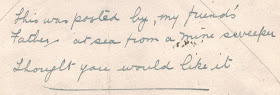 This was posted by, my friend's
Father at sea from a mine sweeper
Thought you would like it